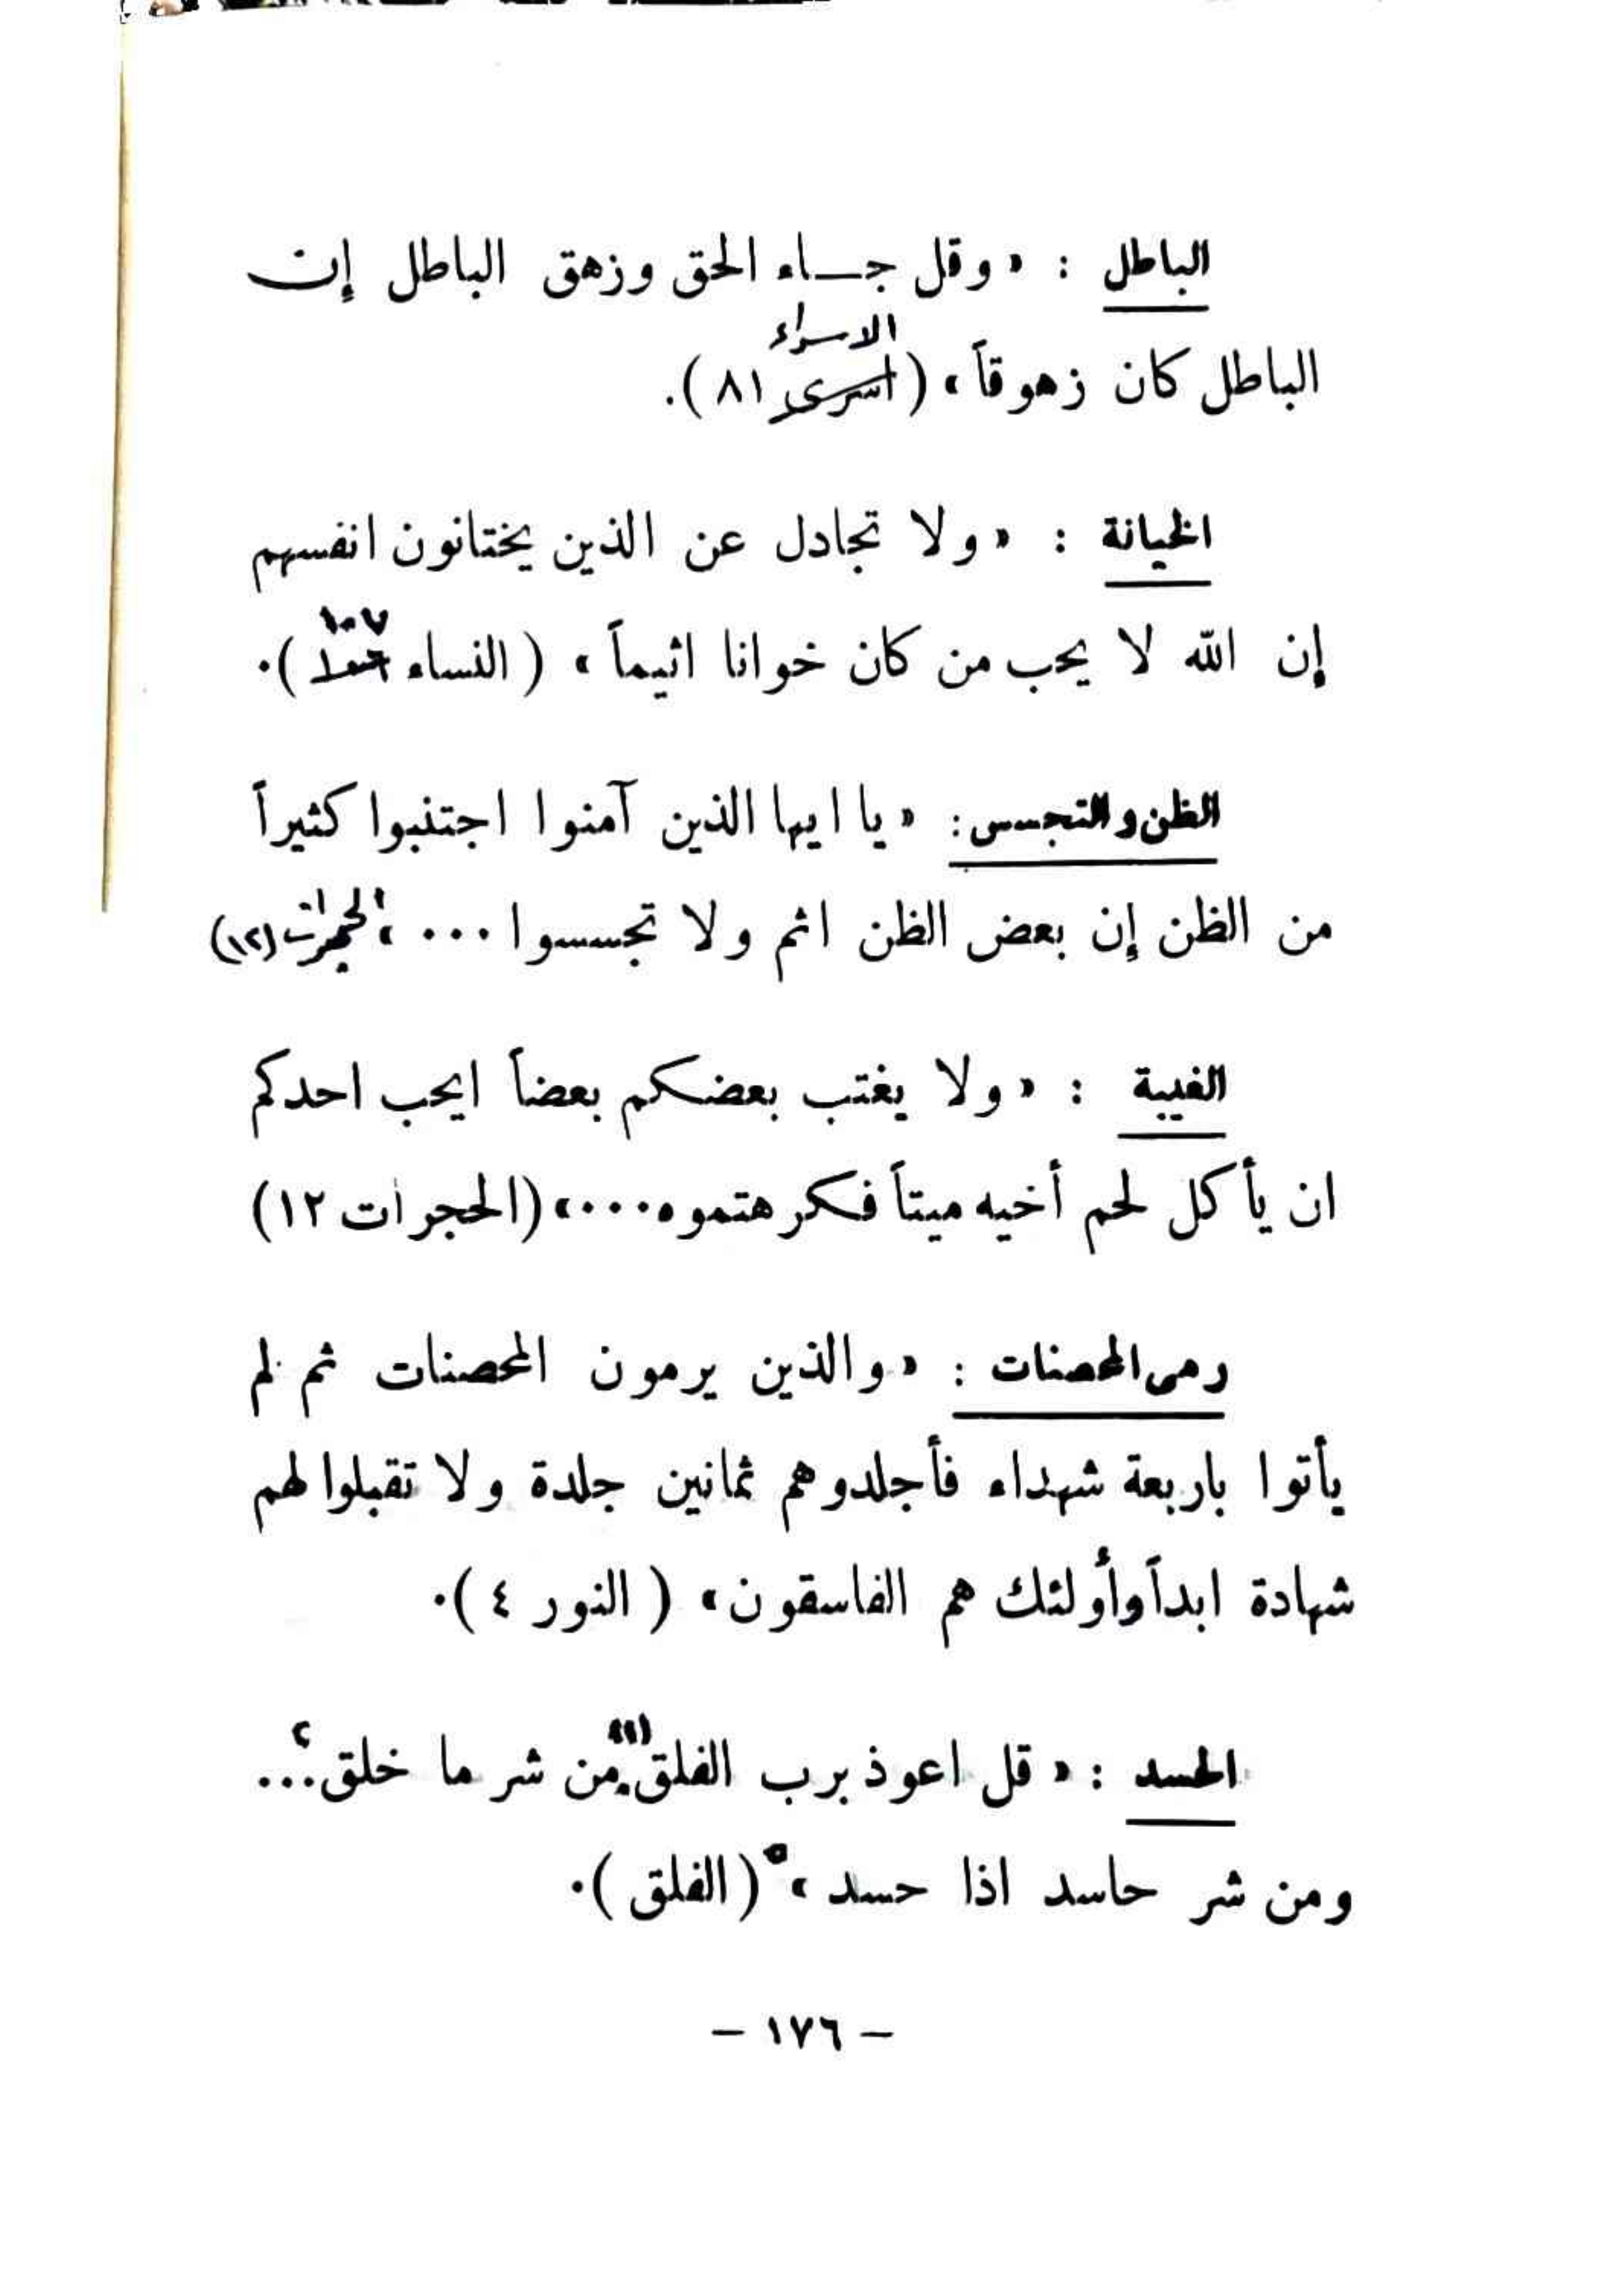 الباطل : « وقل جــاء الحق وزهق الباطل إن
الاسراء
الباطل كان زهوقاً » ( اسرى ٨١ ).
الخيانة : « ولا تجادل عن الذين يختانون انفسهم
١٠٧
إن الله لا يحب من كان خوانا اثيماً » ( النساء ).
الظن والتجسس : « يا ايها الذين آمنوا اجتنبوا كثيراً
من الظن إن بعض الظن اثم ولا تجسسوا ... » الحجرات (١٢)
الغيبة : « ولا يغتب بعضكم بعضاً ايحب احدكم
ان يأكل لحم أخيه ميتاً فكرهتموه ... » (الحجرات ١٢)
رمى المحصنات : « والذين يرمون المحصنات ثم لم
يأتوا باربعة شهداء فأجلدوهم ثمانين جلدة ولا تقبلوا لهم
شهادة ابداً وأولئك هم الفاسقون » ( النور ٤ ).
الحسد : « قل اعوذ برب الفلق (١) من شر ما خلق ٢ ...
ومن شر حاسد اذا حسد » ٥ ( الفلق ).
– ١٧٦ –